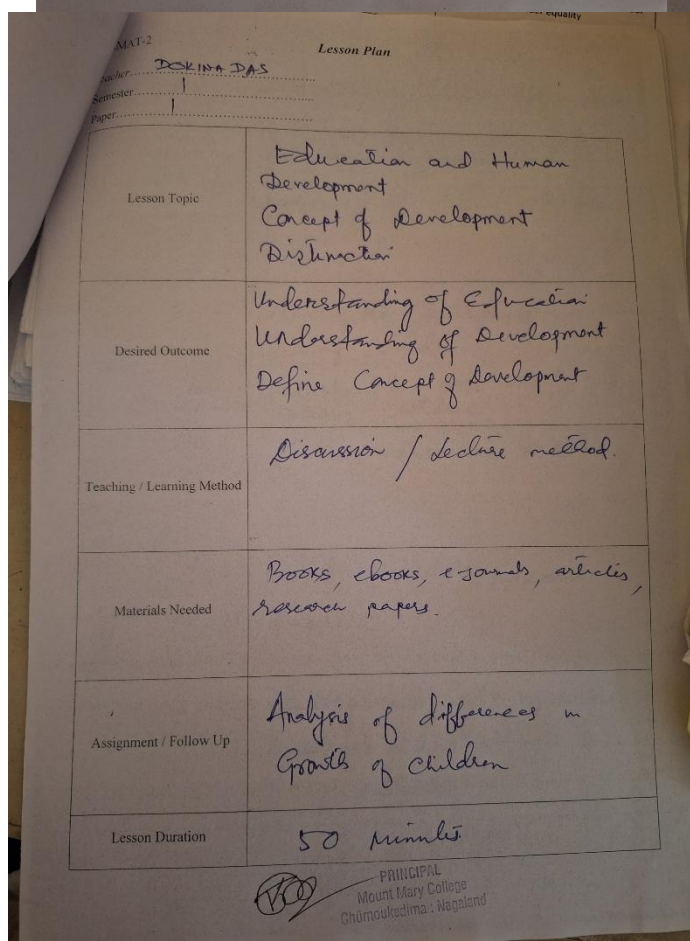 equality
MAT-2
Lesson Plan
acher DOKINA DAS
Semester 1
Paper 1
Lesson Topic
Education and Human
Development
Concept of Development
Distinction
Desired Outcome
Understanding of Education
Understanding of Development
Define Concept of Development
Teaching / Learning Method
Discussion / Lecture method.
Materials Needed
Books, ebooks, e-journals, articles,
research papers.
Assignment / Follow Up
Analysis of differences in
Growth of Children
Lesson Duration
50 minutes
PRINCIPAL
Mount Mary College
Chümoukedima : Nagaland